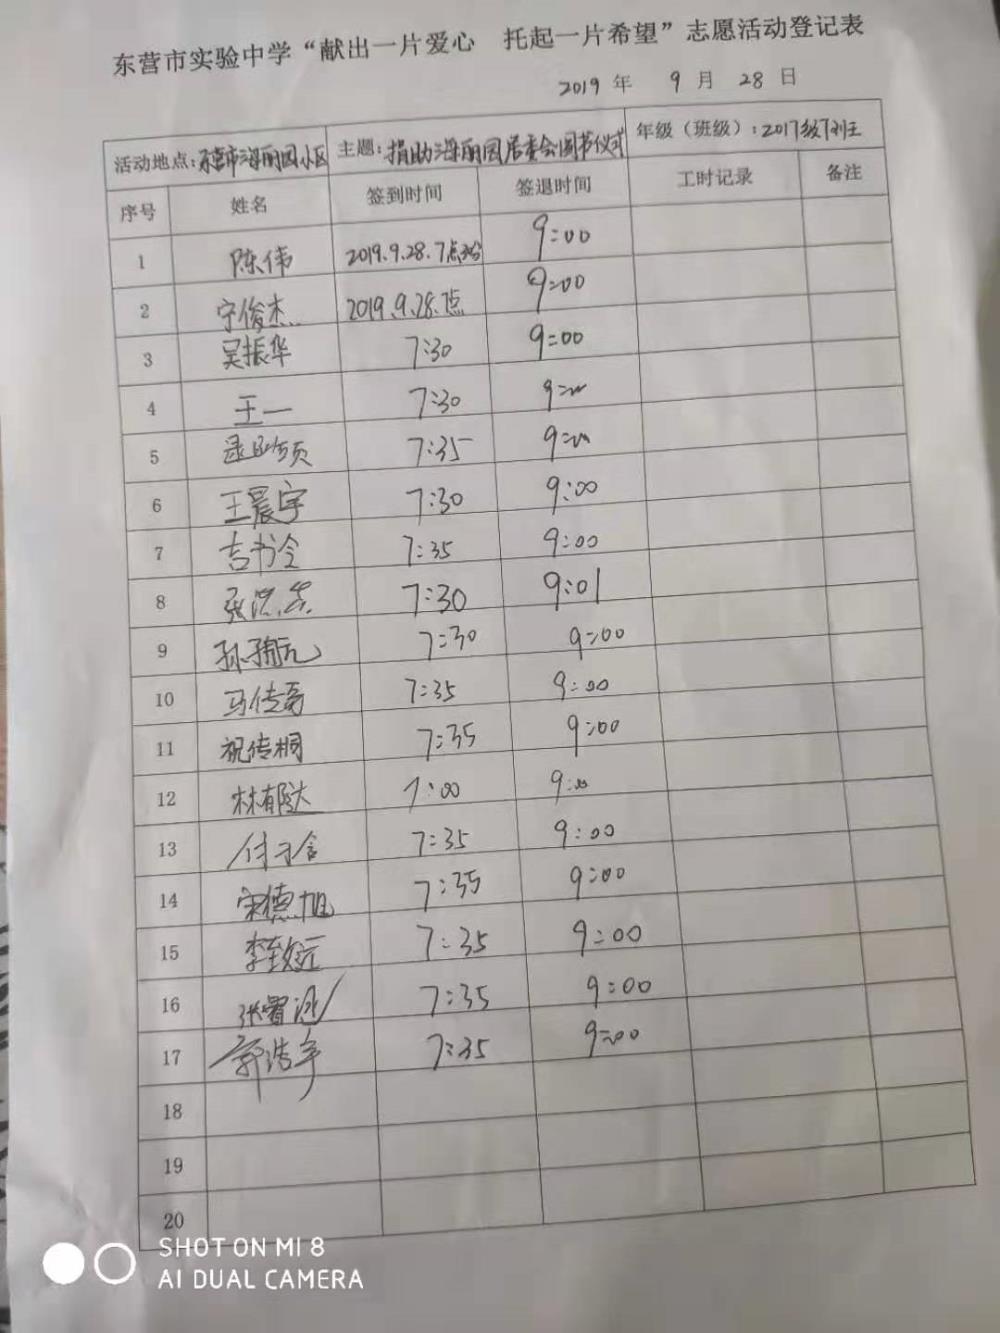 东营市实验中学“献出一片爱心 托起一片希望”志愿活动登记表
2019 年 9 月 28 日
活动地点:东营市海丽园小区 主题:捐助海丽园居委会图书仪式 年级（班级）:2017级7班
序号 姓名 签到时间 签退时间 工时记录 备注
1 陈伟 2019.9.28.7点 9:00
2 宁俊杰 2019.9.28.7点 9:00
3 吴振华 7:30 9:00
4 王一 7:30 9:00
5 7:35 9:00
6 王晨宇 7:30 9:00
7 吉书令 7:35 9:00
8 张 7:30 9:01
9 孙 7:30 9:00
10 马传 7:35 9:00
11 祝传桐 7:35 9:00
12 林郁达 7:00 9:00
13 付子含 7:35 9:00
14 宋德旭 7:35 9:00
15 李致远 7:35 9:00
16 张 7:35 9:00
17 郭浩宇 7:35 9:00
18
19
20
SHOT ON MI 8
AI DUAL CAMERA